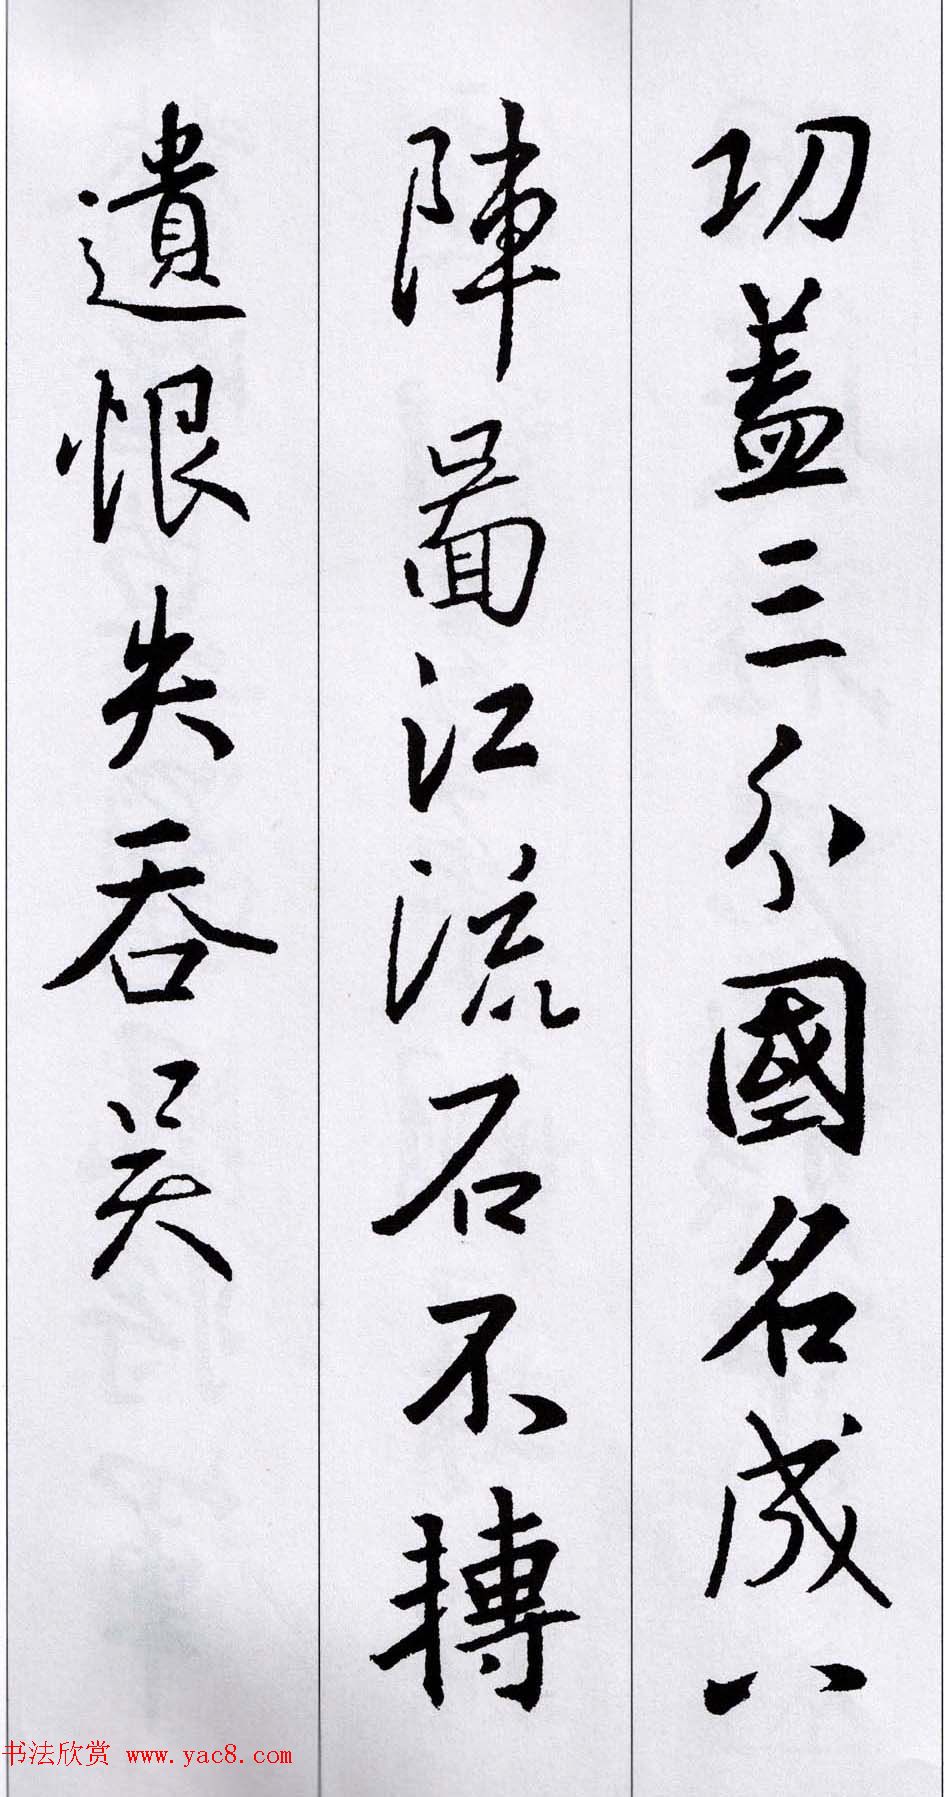 功蓋三分國名成八
陣圖江流石不轉
遺恨失吞吳
书法欣赏 www.yac8.com